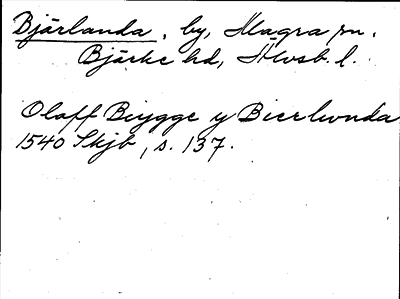 Bjärlanda, by, Magra sn.
Bjärke hd, Älvsb. l.
Olaff Brygge y Bierlunda
1540 Skjb, s. 137.